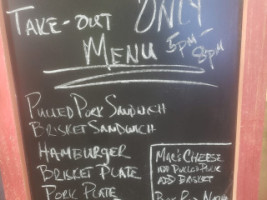 TAKE-OUT ONLY
MENU 5PM-8PM
PULLED PORK SANDWICH
BRISKET SANDWICH
HAMBURGER
BRISKET PLATE
PORK PLATE
MAC & CHEESE
AND PULLED PORK
ADD BRISKET